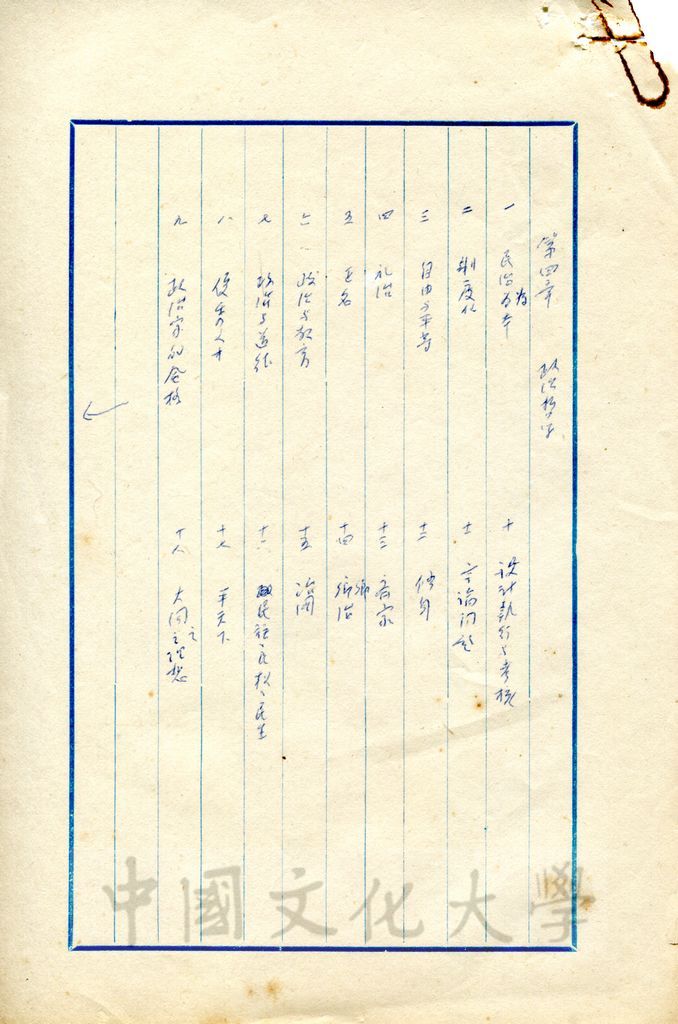 第四章 政治哲学
一 民治为本
二 制度化
三 自由与平等
四 礼治
五 正名
六 政治与教育
七 政治与道德
八 優秀人才
九 政治家的風格
十 設計執行与考核
十一 言論問題
十二 修身
十三 齐家
十四 鄉治
十五 治国
十六 民族、民权、民生
十七 平天下
十八 大同之理想
中國文化大學